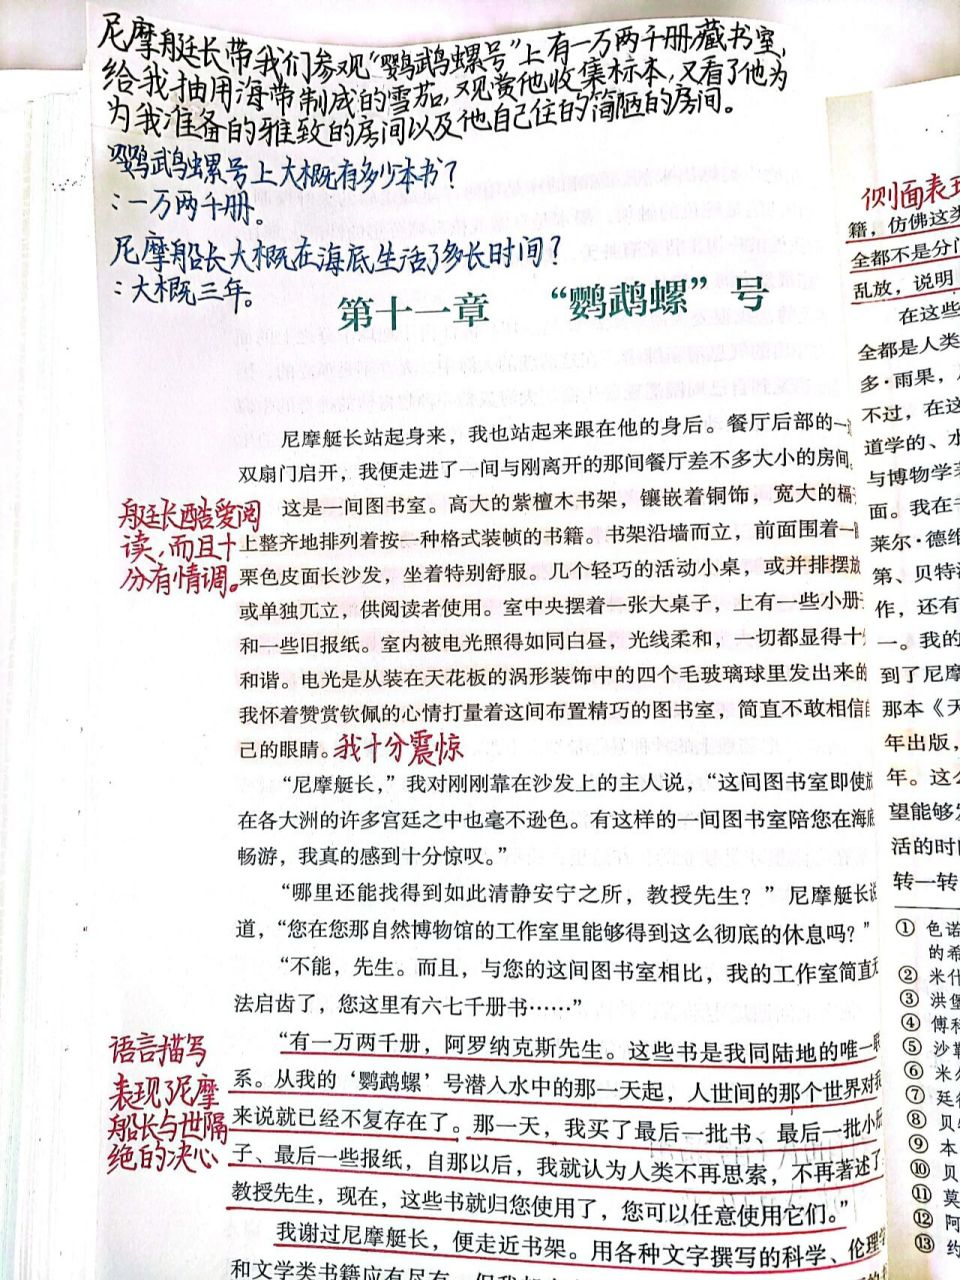 尼摩艇长带我们参观“鹦鹉螺号”上有一万两千册藏书室,
给我抽用海带制成的雪茄,又观赏他收集标本,又看了他为
为我准备的雅致的房间以及他自己住的简陋的房间。
鹦鹉螺号上大概有多少本书?
:一万两千册。
尼摩船长大概在海底生活了多长时间?
:大概三年。
第十一章 “鹦鹉螺”号
尼摩艇长站起身来，我也站起来跟在他的身后。餐厅后部的一
双扇门启开，我便走进了一间与刚离开的那间餐厅差不多大小的房间
这是一间图书室。高大的紫檀木书架，镶嵌着铜饰，宽大的
上整齐地排列着按一种格式装帧的书籍。书架沿墙而立，前面围着一
栗色皮面长沙发，坐着特别舒服。几个轻巧的活动小桌，或并排摆放
或单独兀立，供阅读者使用。室中央摆着一张大桌子，上有一些小册
和一些旧报纸。室内被电光照得如同白昼，光线柔和，一切都显得十
和谐。电光是从装在天花板的涡形装饰中的四个毛玻璃球里发出来的
我怀着赞赏钦佩的心情打量着这间布置精巧的图书室，简直不敢相信
己的眼睛。我十分震惊
艇长酷爱阅
读,而且十
分有情调。
“尼摩艇长，”我对刚刚靠在沙发上的主人说，“这间图书室即使
在各大洲的许多宫廷之中也毫不逊色。有这样的一间图书室陪您在海底
畅游，我真的感到十分惊叹。”
“哪里还能找得到如此清静安宁之所，教授先生？”尼摩艇长说
道，“您在您那自然博物馆的工作室里能够得到这么彻底的休息吗？”
“不能，先生。而且，与您的这间图书室相比，我的工作室简直
法启齿了，您这里有六七千册书……”
“有一万两千册，阿罗纳克斯先生。这些书是我同陆地的唯一
系。从我的‘鹦鹉螺’号潜入水中的那一天起，人世间的那个世界对我
来说就已经不复存在了。那一天，我买了最后一批书、最后一批小
子、最后一些报纸，自那以后，我就认为人类不再思索，不再著述了
教授先生，现在，这些书就归您使用了，您可以任意使用它们。”
我谢过尼摩艇长，便走近书架。用各种文字撰写的科学、伦理
和文学类书籍应有尽有
语言描写
表现了尼摩
船长与世隔
绝的决心
侧面表现
籍，仿佛这类
全都不是分门
乱放，说明
在这些
全都是人类
多·雨果，
不过，在这
道学的、水
与博物学
面。我在
莱尔·德维
第、贝特
作，还有
一。我的
到了尼摩
那本《天
年出版，
年。这么
望能够
活的时间
转一转
① 色诺
的希
② 米什
③ 洪堡
④ 傅科
⑤ 沙勒
⑥ 米尔
⑦ 廷
⑧ 贝
⑨ 本
⑩ 贝
⑪ 莫
⑫ 阿
⑬ 约